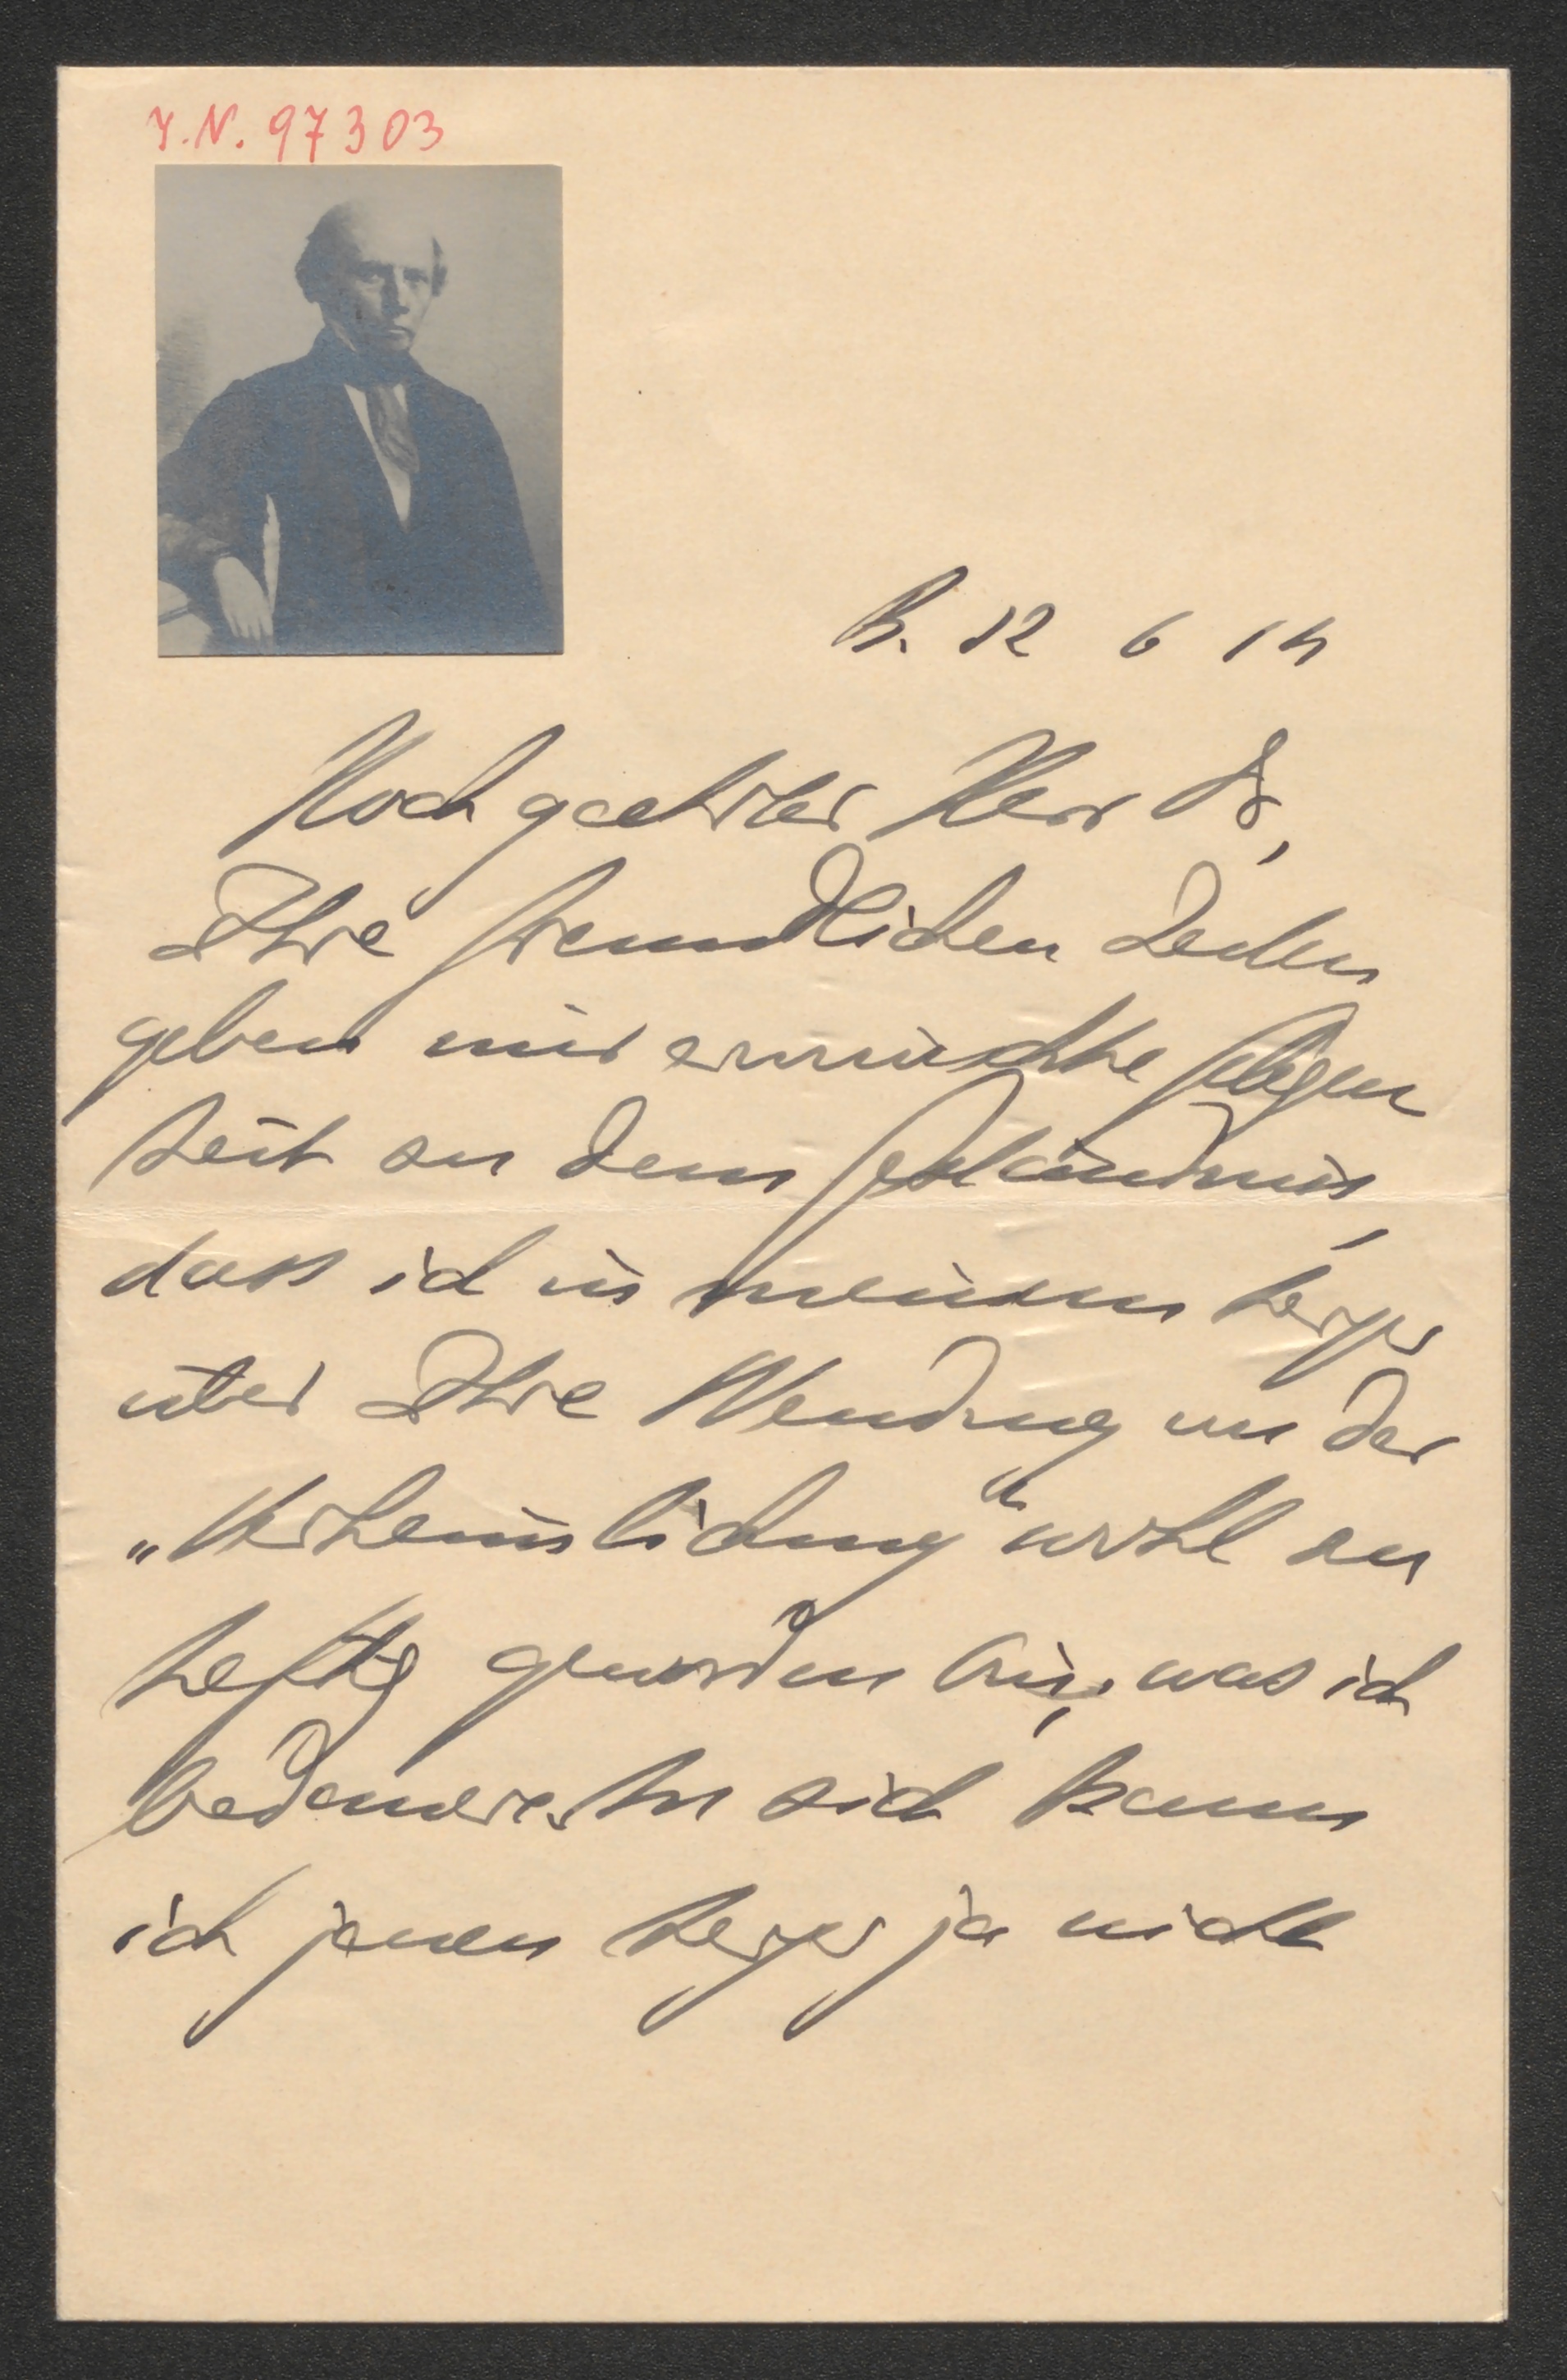 I.N. 97303
B. 12 6 14
Hochgeehrter Herr Dr,
Ihre freundlichen Zeilen
geben mir erwünschte Gelegen
heit zu dem Geständnis,
dass ich in meinem
über Ihre Wendung von der
„Verheimlichung" wohl zu
heftig geworden bin, was ich
bedauere. An sich kann
ich jenen ja nicht